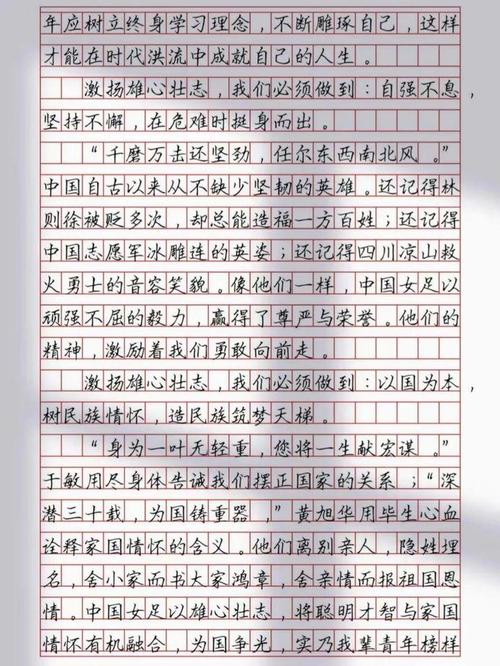 年应树立终身学习理念，不断雕琢自己，这样
才能在时代洪流中成就自己的人生。
激扬雄心壮志，我们必须做到：自强不息，
坚持不懈，在危难时挺身而出。
“千磨万击还坚劲，任尔东西南北风。”
中国自古以来从不缺少坚韧的英雄。还记得林
则徐被贬多次，却总能造福一方百姓；还记得
中国志愿军冰雕连的英姿；还记得四川凉山救
火勇士的音容笑貌。像他们一样，中国女足以
顽强不屈的毅力，赢得了尊严与荣誉。他们的
精神，激励着我们勇敢向前走。
激扬雄心壮志，我们必须做到：以国为本，
树民族情怀，造民族筑梦天梯。
“身为一叶无轻重，您将一生献宏谋。”
于敏用尽身体告诫我们摆正国家的关系；“深
潜三十载，为国铸重器，”黄旭华用毕生心血
诠释家国情怀的含义。他们离别亲人，隐姓埋
名，舍小家而书大家鸿章，舍亲情而报祖国恩
情。中国女足以雄心壮志，将聪明才智与家国
情怀有机融合，为国争光，实乃我辈青年榜样